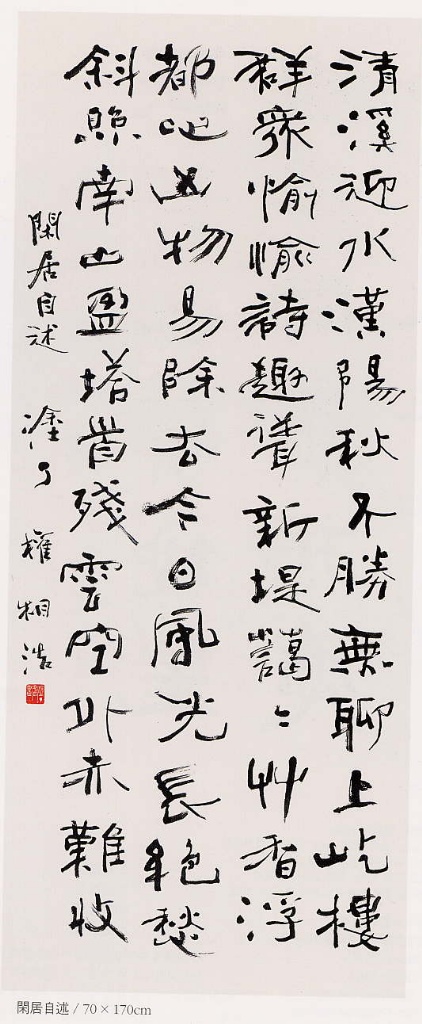 清溪迎水漢陽秋不勝無聊上屹樓
群衆愉愉詩趣聳新堤藹〻艸香浮
都心凶物易除去今日風光長絶愁
斜照南山盈塔背殘雲空外亦難收
閑居自述 塗丁 權相浩
閑居自述 / 70 × 170cm